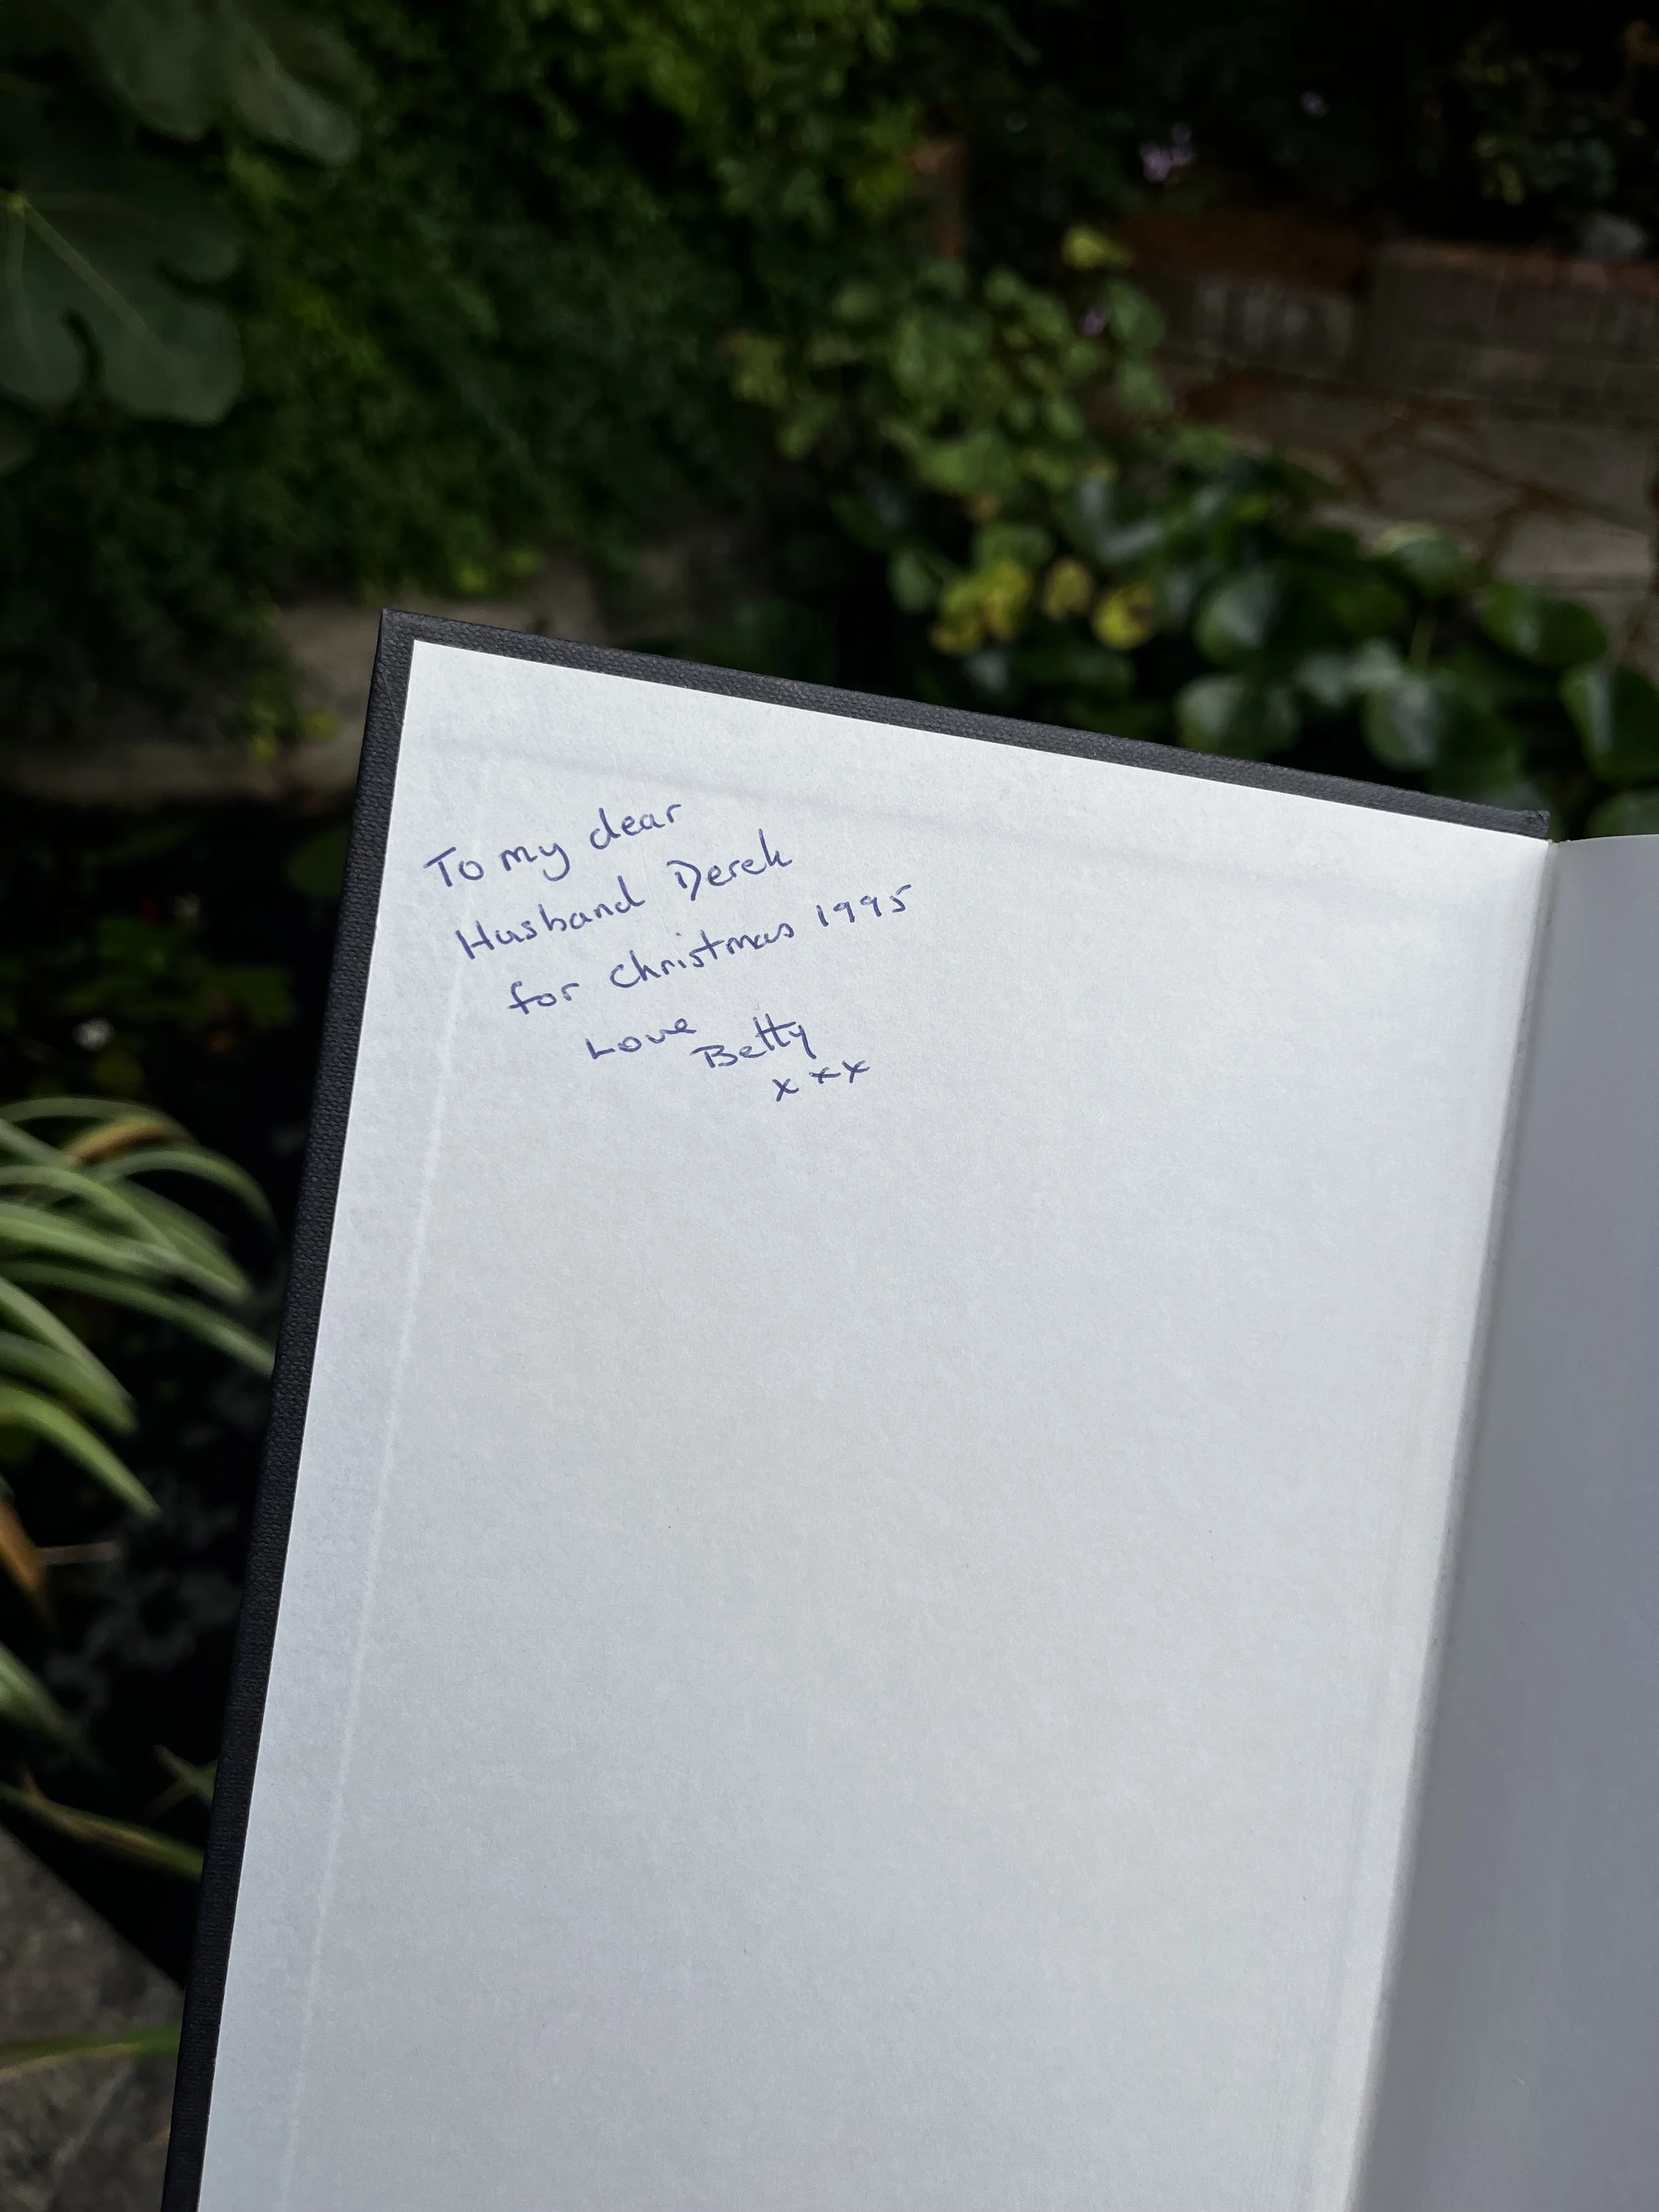 To my dear
Husband Derek
for Christmas 1995
Love
Betty
x x x